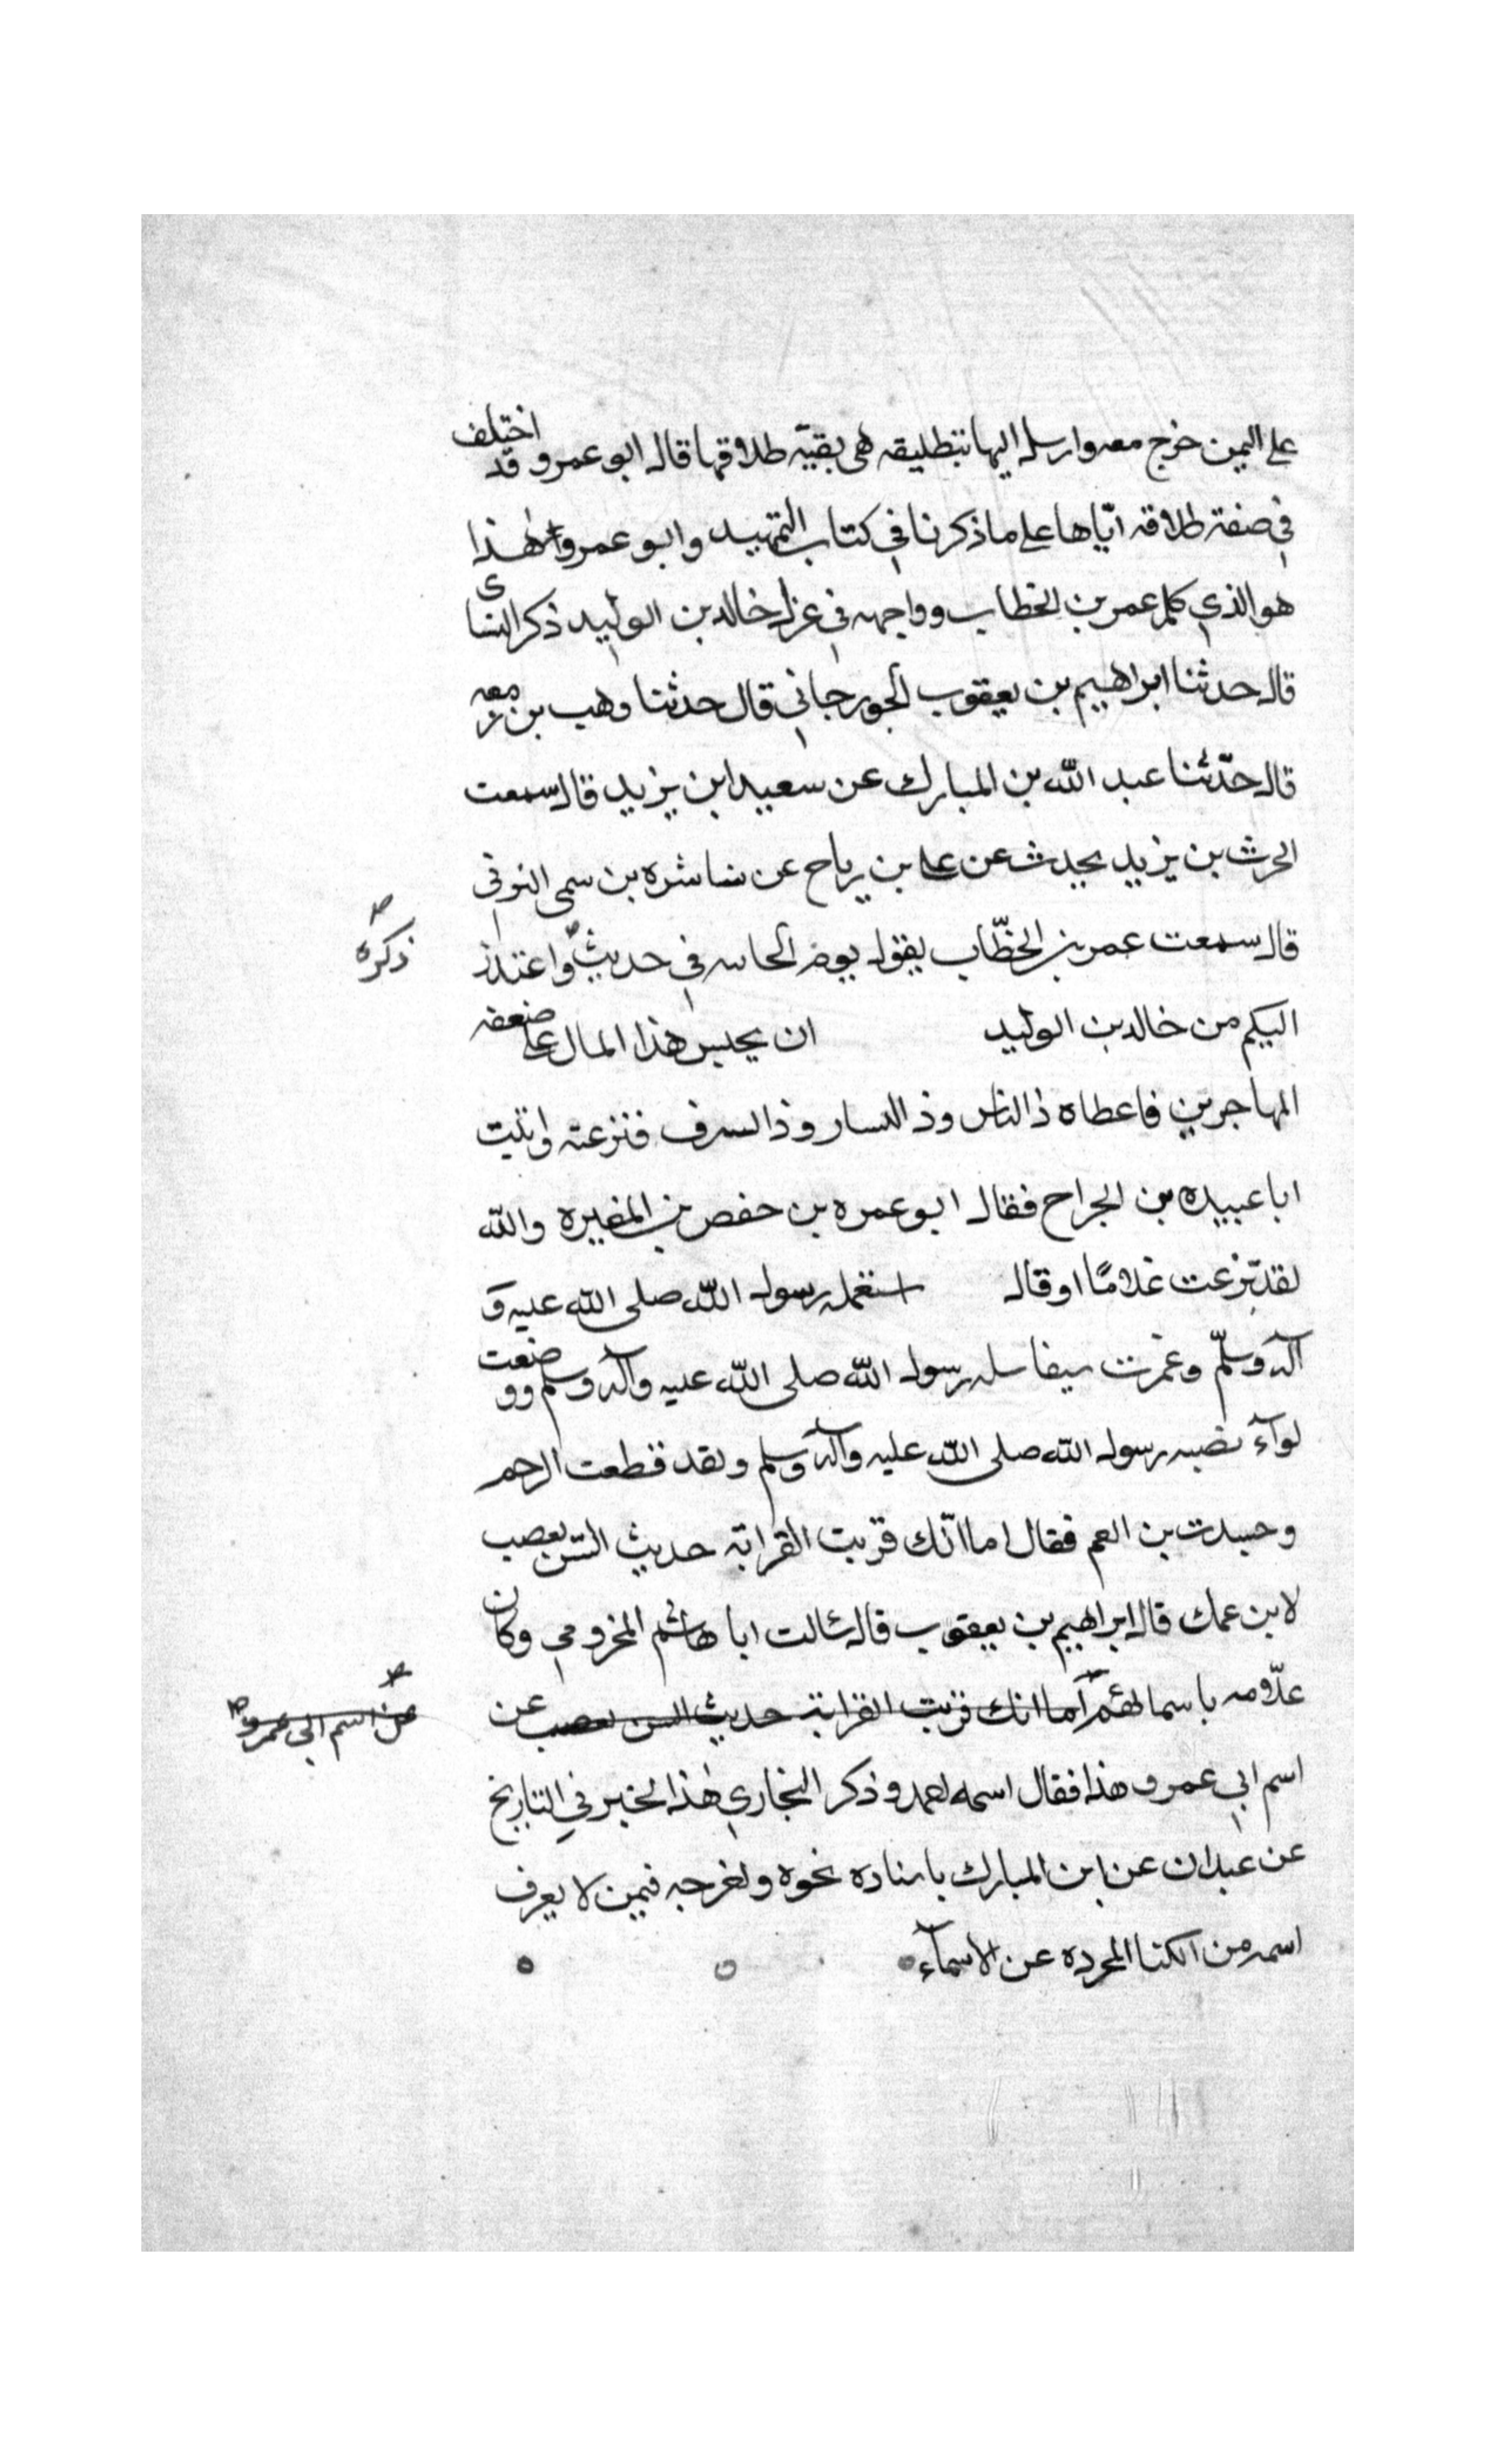 على اليمن خرج معه وارسل اليها بتطليقه هى بقيّه طلاقها قال ابو عمرو وقد اختلف
فى صفة طلاقه ايّاها على ما ذكرنا فى كتاب التمهيد وابو عمرو هٰذا
هو الذى كلم عمر بن الخطاب وواجهه فى عزل خالد بن الوليد ذكر النساى
قال حدثنا ابراهيم بن يعقوب الجورجانى قال حدثنا وهب بن زمعه
قال حدّثنا عبد الله بن المبارك عن سعيد ابن يزيد قال سمعت
الحرث بن يزيد يحدث عن على بن رياح عن ناشره بن سمى
قال سمعت عمر بن الخطّاب يقول يوم فى حديث واعتذر
ذكره
اليكم من خالد بن الوليد ان يحبس هذا المال على ضعفه
المهاجرين فاعطاه ذا الناس وذ اللسار وذا السرف فنزعته واثبت
ابا عبيده بن الجراح فقال ابو عمره بن حفص بن المغيره والله
لقد نزعت غلامًا او قال استعمل رسول الله صلى الله عليه و
آله وسلّم وغمرت سيفا سله رسول الله صلى الله عليه وآله وسلم ووضعت
لوآء نصبه رسول الله صلى الله عليه وآله وسلم ولقد قطعت الرحم
وحسدت بن العم فقال اما انّك قريت القرابة حديث السّن تعصب
لابن عمك قال ابراهيم بن يعقوب قال سالت ابا هاشم المخزومى وكان
علّامه باسمائهم اما انك قريت القرابة حديث السن تعصب عن
عن اسم ابى عمرو
اسم ابى عمرو هذا فقال اسمه احمد وذكر البخارى هٰذا الخبر فى التاريخ
عن عبدان عن ابن المبارك باسناده نحوه واخرجه فيمن لا يعرف
اسمه من الكنا المجرده عن الاسمآء